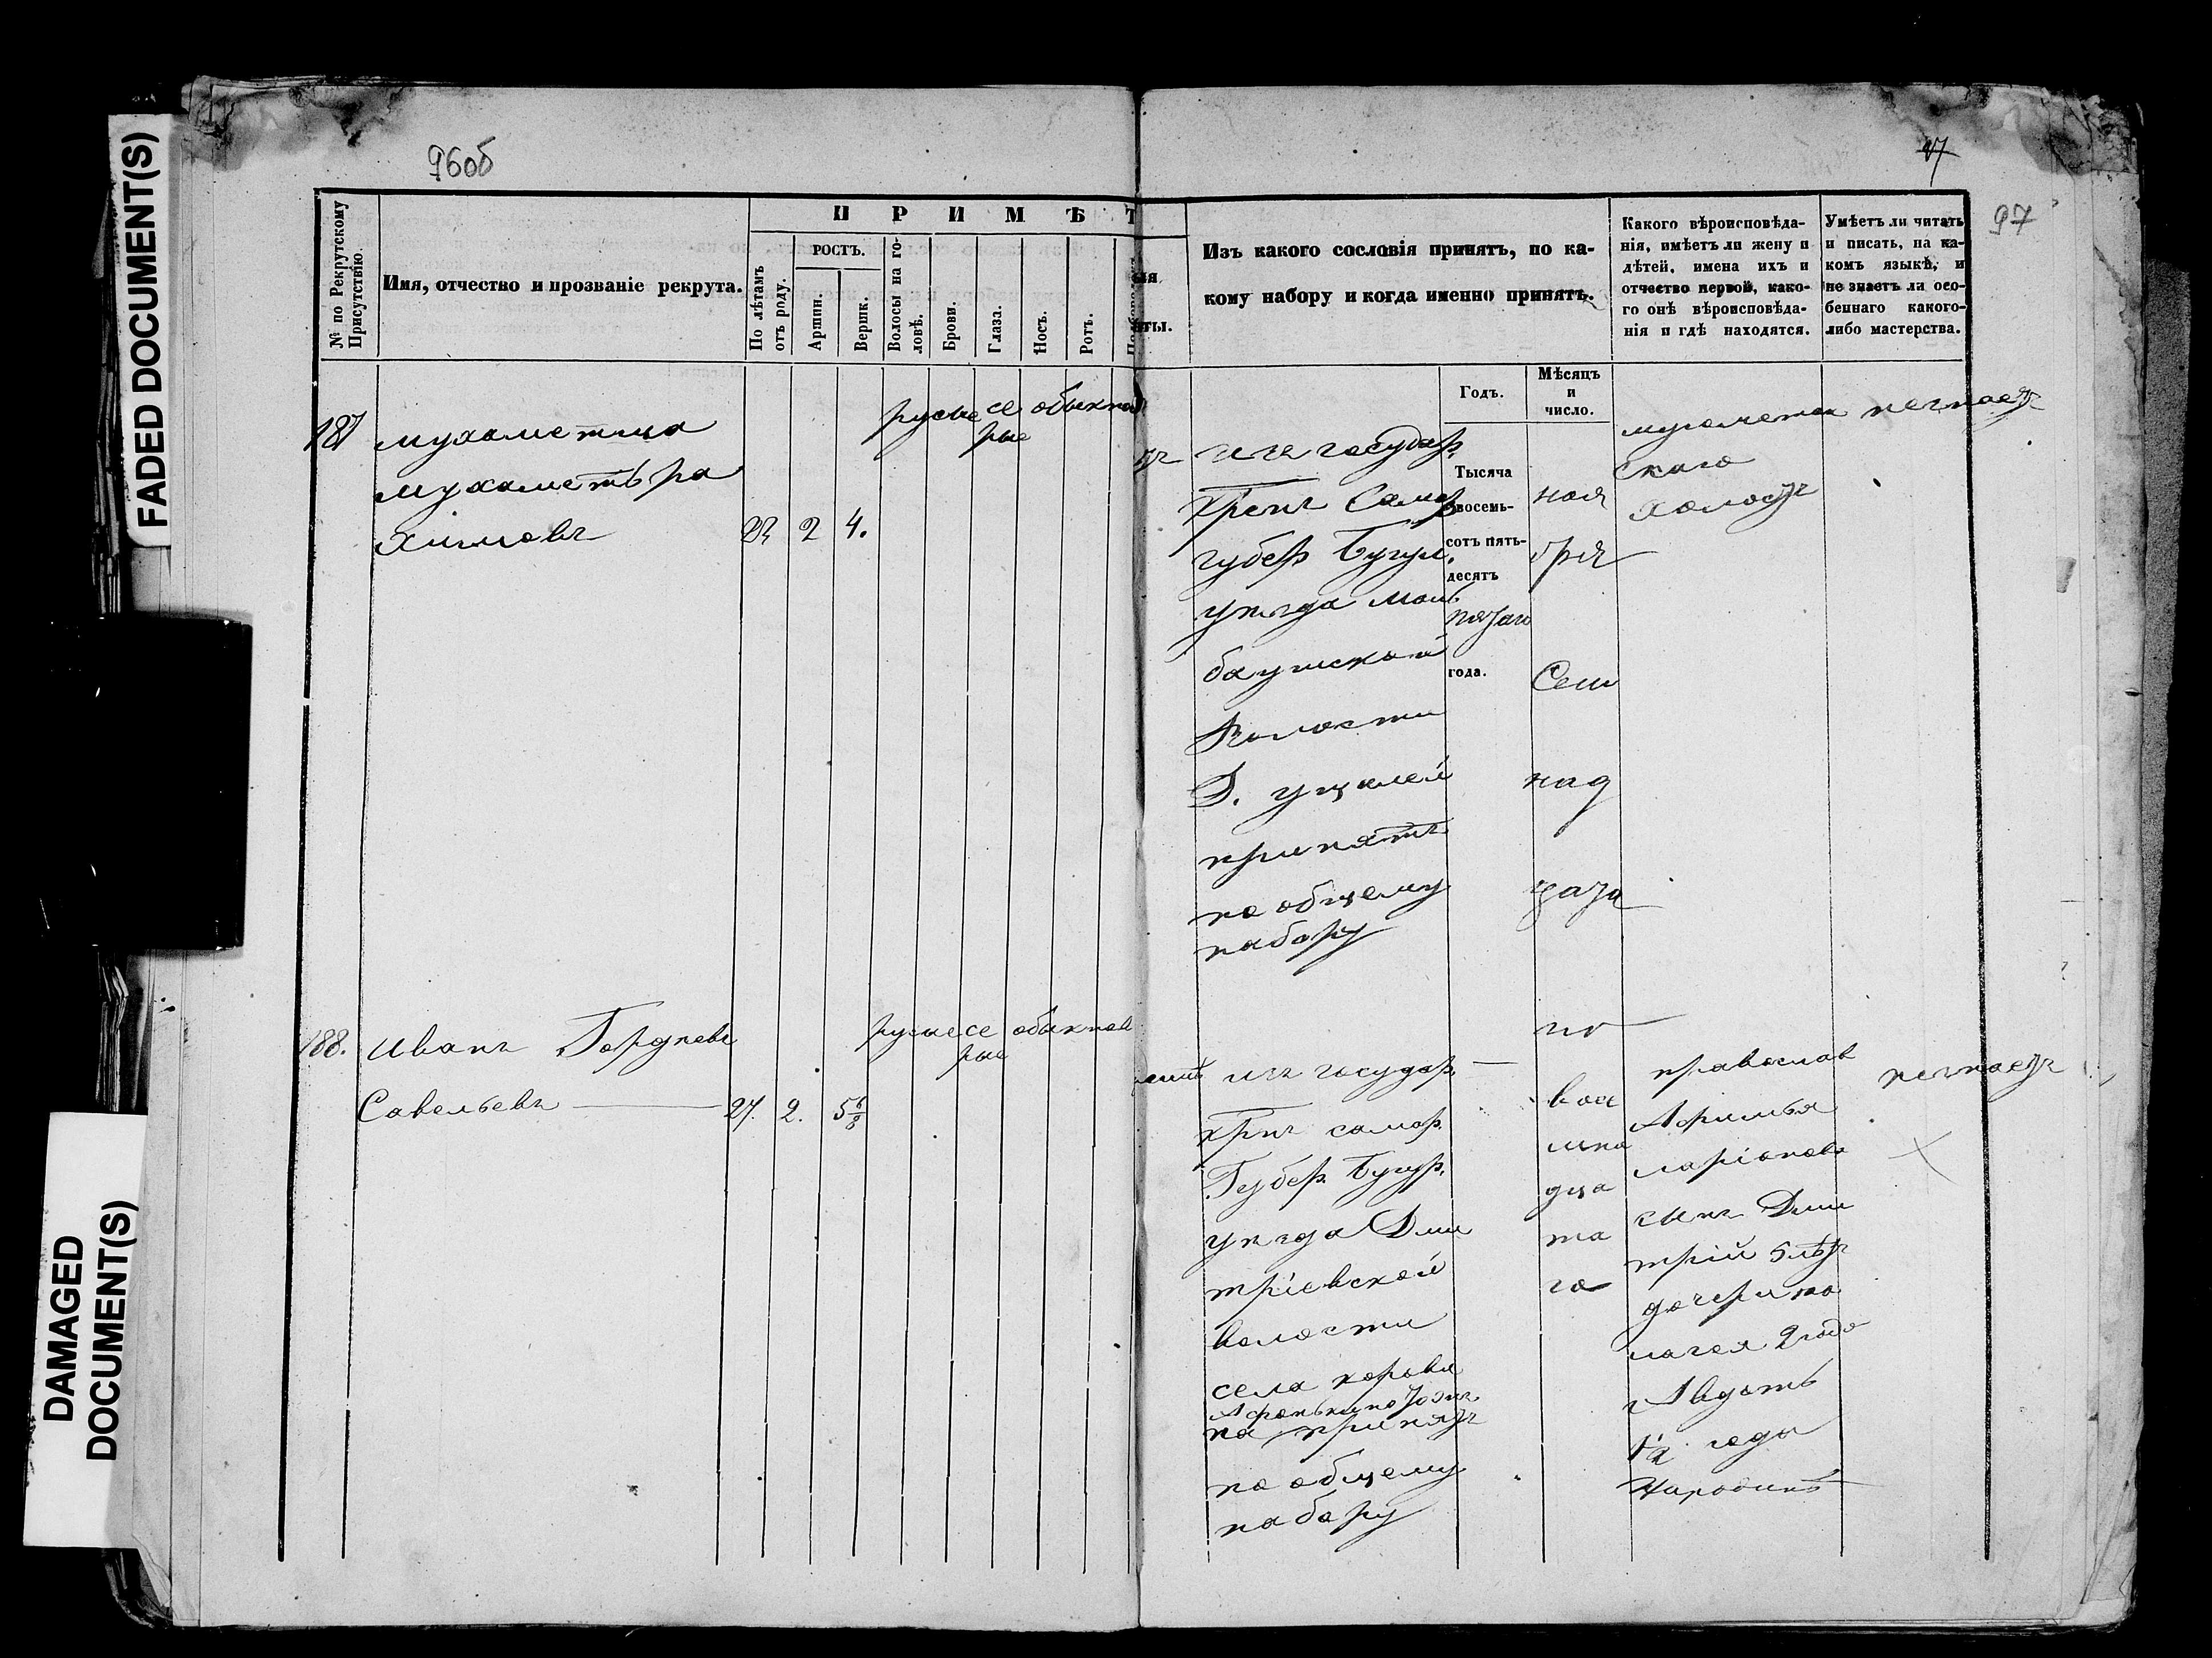 FADED DOCUMENT(S)
DAMAGED DOCUMENT(S)
96об
97
97
№ по Рекрутскому Присутствію.
Имя, отчество и прозваніе рекрута.
П Р И М Ѣ Т
По лѣтамъ отъ роду.
РОСТЪ.
Аршин.
Вершк.
Волосы на головѣ.
Брови.
Глаза.
Носъ.
Ротъ.
ыя
ѣты.
Изъ какого сословія принятъ, по ка-
кому набору и когда именно принятъ.
Какого вѣроисповѣда-
нія, имѣетъ ли жену и
дѣтей, имена ихъ и
отчество первой, како-
го онѣ вѣроисповѣда-
нія и гдѣ находятся.
Умѣетъ ли читать
и писать, на ка-
комъ языкѣ, и
не знаетъ ли осо-
беннаго какого-
либо мастерства.
Годъ.
Мѣсяцъ
и
число.
187
мухаметша
мухаметьра
химовъ
2 4.
русые се обыкнов
рые
изъ государ.
крснъ Самар
губер Бугул.
уѣзда
баушской
волости
Д.
принятъ
по общему
набору
Тысяча
восемь-
сотъ пять-
десятъ
пятаго
года.
ноя
бря
Сем
над
цата
го
мугаметан
скаго
холостъ
незнаетъ
188. Иванъ Гордѣевъ
Савельевъ 27. 2. 5 6/8
русые се обыкнов
рые
изъ государ.
крснъ самар.
Губер. Бугур.
уѣзда Дми
тріевской
волости
села корова
Афонькино тожъ
на принятъ
по общему
набору
вос
мна
дца
та
го
православ
Афимья
ларіонова
сынъ Дми
трій 5 лѣтъ
дочери па
лагея 2 года
Авдоть
1/2 года
незнаетъ